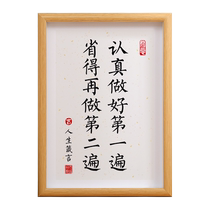 认真做好第一遍
省得再做第二遍
人生箴言